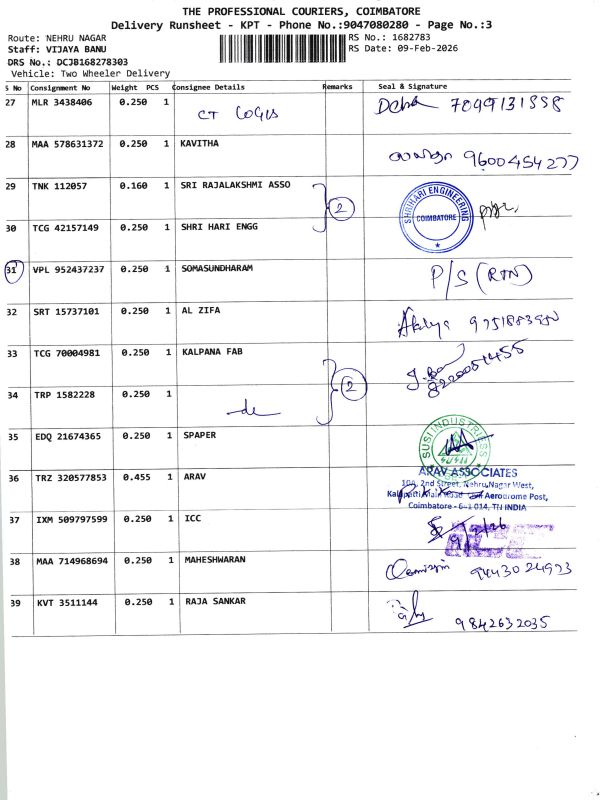 THE PROFESSIONAL COURIERS, COIMBATORE
Delivery Runsheet - KPT - Phone No.:9047080280 - Page No.:3
Route: NEHRU NAGAR
Staff: VIJAYA BANU
DRS No.: DCJB168278303
Vehicle: Two Wheeler Delivery
RS No.: 1682783
RS Date: 09-Feb-2026
S No Consignment No Weight PCS Consignee Details Remarks Seal & Signature
27 MLR 3438406 0.250 1 CT LOGIS
28 MAA 578631372 0.250 1 KAVITHA 9600454277
29 TNK 112057 0.160 1 SRI RAJALAKSHMI ASSO 2
SHRIHARI ENGINEERING COIMBATORE
30 TCG 42157149 0.250 1 SHRI HARI ENGG
31 VPL 952437237 0.250 1 SOMASUNDHARAM P/S (RTN)
32 SRT 15737101 0.250 1 AL ZIFA
33 TCG 70004981 0.250 1 KALPANA FAB 2
34 TRP 1582228 0.250 1
35 EDQ 21674365 0.250 1 SPAPER
SUSI INDUSTRIES
36 TRZ 320577853 0.455 1 ARAV
ARAV ASSOCIATES
10A, 2nd Street, Nehru Nagar West,
Kalapatti Main Road Aerodrome Post,
Coimbatore - 641 014, TN INDIA
37 IXM 509797599 0.250 1 ICC 9/2/26
38 MAA 714968694 0.250 1 MAHESHWARAN 9443024973
39 KVT 3511144 0.250 1 RAJA SANKAR 9842632035